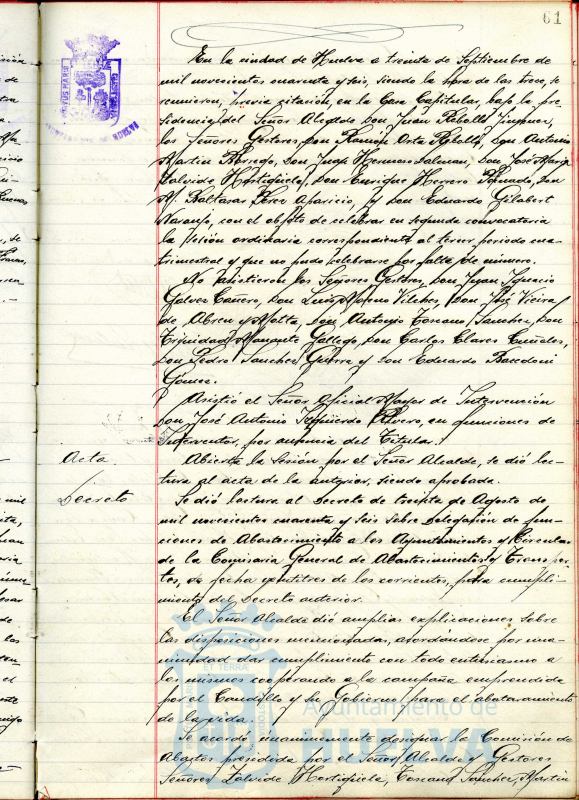 61
En la ciudad de Huelva a treinta de Septiembre de
mil novecientos cuarenta y seis, siendo la hora de las trece, se
reunieron, previa citación, en la Casa Capitular, bajo la pre-
sidencia del Señor Alcalde Don Juan Rebollo
los Señores Gestores, Don Ramón Orta Rebollo, Don Antonio
Martin Borrego, Don Juan Hermoso Dalmau, Don José María
Zalvide Hortigüela, Don Enrique Herrero Don
Baltasar Pérez Aparicio, y Don Eduardo Gilabert
Naranjo, con el objeto de celebrar en segunda convocatoria
la sesión ordinaria correspondiente al tercer periodo cua-
trimestral y que no pudo celebrarse por falta de número.
No asistieron los Señores Gestores, Don Juan Ignacio
Galvez Cañero, Don Luis Moreno Vilches, Don José Vieira
de Abreu y Motta, Don Antonio Toscano Sanchez, Don
Trinidad Gallego, Don Carlos Clares Cañales,
Don Pedro Sanchez Guerra y Don Eduardo
Gómez.
Asistió el Señor Oficial Mayor de Intervención
Don José Antonio Izquierdo en funciones de
Interventor, por ausencia del Titular.
Acta.
Abierta la Sesión por el Señor Alcalde, se dió lec-
tura al acta de la anterior, siendo aprobada.
Decreto
Se dió lectura al Decreto de treinta de Agosto de
mil novecientos cuarenta y seis sobre Delegación de fun-
ciones de Abastecimiento a los Ayuntamientos y Circular
de la Comisaria General de Abastecimientos y Transpor-
tes, de fecha veintitres de los corrientes, para cumpli-
miento del Decreto anterior.
El Señor Alcalde dió amplias explicaciones sobre
las disposiciones mencionadas, acordándose por una-
nimidad dar cumplimiento con todo entusiasmo a
los mismos cooperando a la campaña emprendida
por el Caudillo y su Gobierno para el abaratamiento
de la vida.
Se acordó unanimemente designar la Comisión de
Abastos presidida por el Señor Alcalde y Gestores
Señores Zalvide Hortigüela, Toscano Sanchez, Martin
Ayuntamiento de
HUELVA